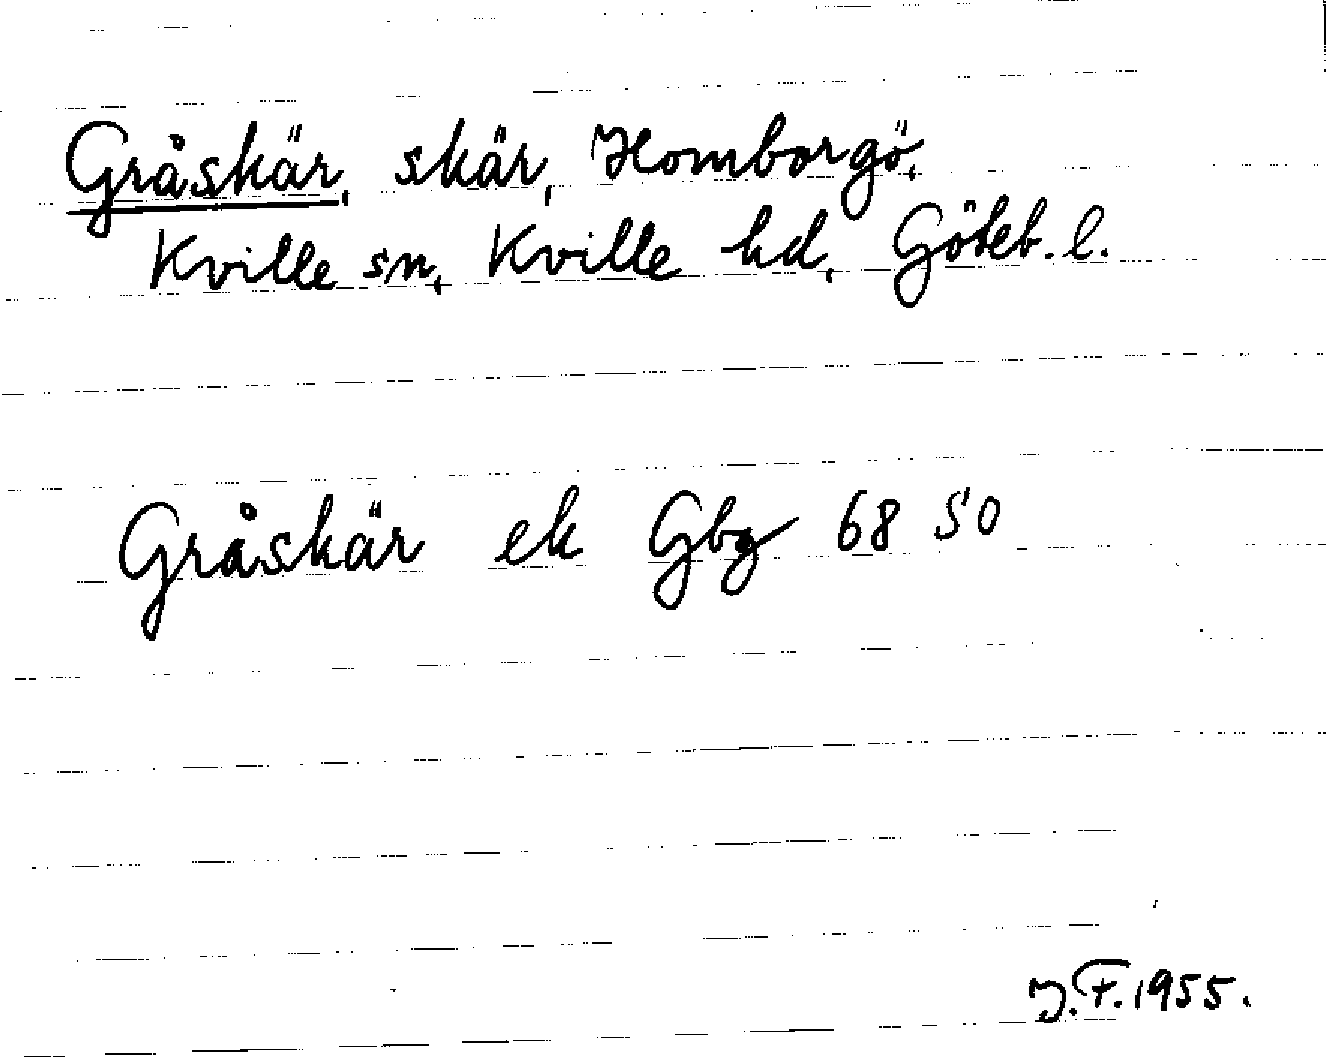 Gråskär, skär, Homborgö,
Kville sn, Kville hd, Göteb. l.
Gråskär ek Gbg 68 SO
J.F. 1955.